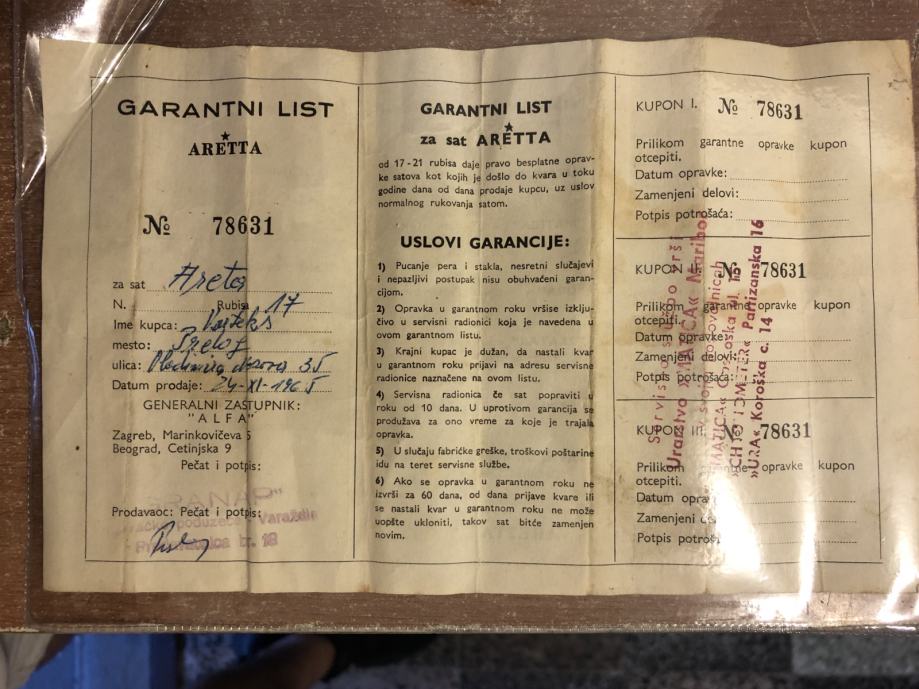 GARANTNI LIST
ARETTA
№ 78631
za sat Areta
N. Rubisa 17
Ime kupca: Varteks
mesto: Prelog
ulica: 35
Datum prodaje: 24-XI-1965
GENERALNI ZASTUPNIK:
"ALFA"
Zagreb, Marinkovićeva 5
Beograd, Cetinjska 9
Pečat i potpis:
Prodavaoc: Pečat i potpis:
poduzeće Varaždin
br. 18
GARANTNI LIST
za sat ARETTA
od 17-21 rubisa daje pravo besplatne oprav-
ke satova kot kojih je došlo do kvara u toku
godine dana od dana prodaje kupcu, uz uslov
normalnog rukovanja satom.
USLOVI GARANCIJE:
1) Pucanje pera i stakla, nesretni slučajevi
i nepazljivi postupak nisu obuhvaćeni garan-
cijom.
2) Opravka u garantnom roku vršise izklju-
čivo u servisni radionici koja je navedena u
ovom garantnom listu.
3) Krajni kupac je dužan, da nastali kvar
u garantnom roku prijavi na adresu servisne
radionice naznačene na ovom listu.
4) Servisna radionica če sat popraviti u
roku od 10 dana. U uprotivom garancija se
produžava za ono vreme za koje je trajala
opravka.
5) U slučaju fabričke greške, troškovi poštarine
idu na teret servisne službe.
6) Ako se opravka u garantnom roku ne
izvrši za 60 dana, od dana prijave kvare ili
se nastali kvar u garantnom roku ne može
uopšte ukloniti, takov sat bitće zamenjen
novim.
KUPON I. № 78631
Prilikom garantne opravke kupon
otcepiti.
Datum opravke:
Zamenjeni delovi:
Potpis potrošača:
KUPON № 78631
Prilikom garantne opravke kupon
otcepiti.
Datum opravke:
Zamenjeni delovi:
Potpis potrošača:
KUPON III. № 78631
Prilikom garantne opravke kupon
otcepiti.
Datum
Zamenjeni
Potpis
Servisno službo vrši
Urarstvo »MATICA« Maribor
v svojih poslovalnicah
»MATICA«
Partizanska 16
»URA« Koroška c. 14